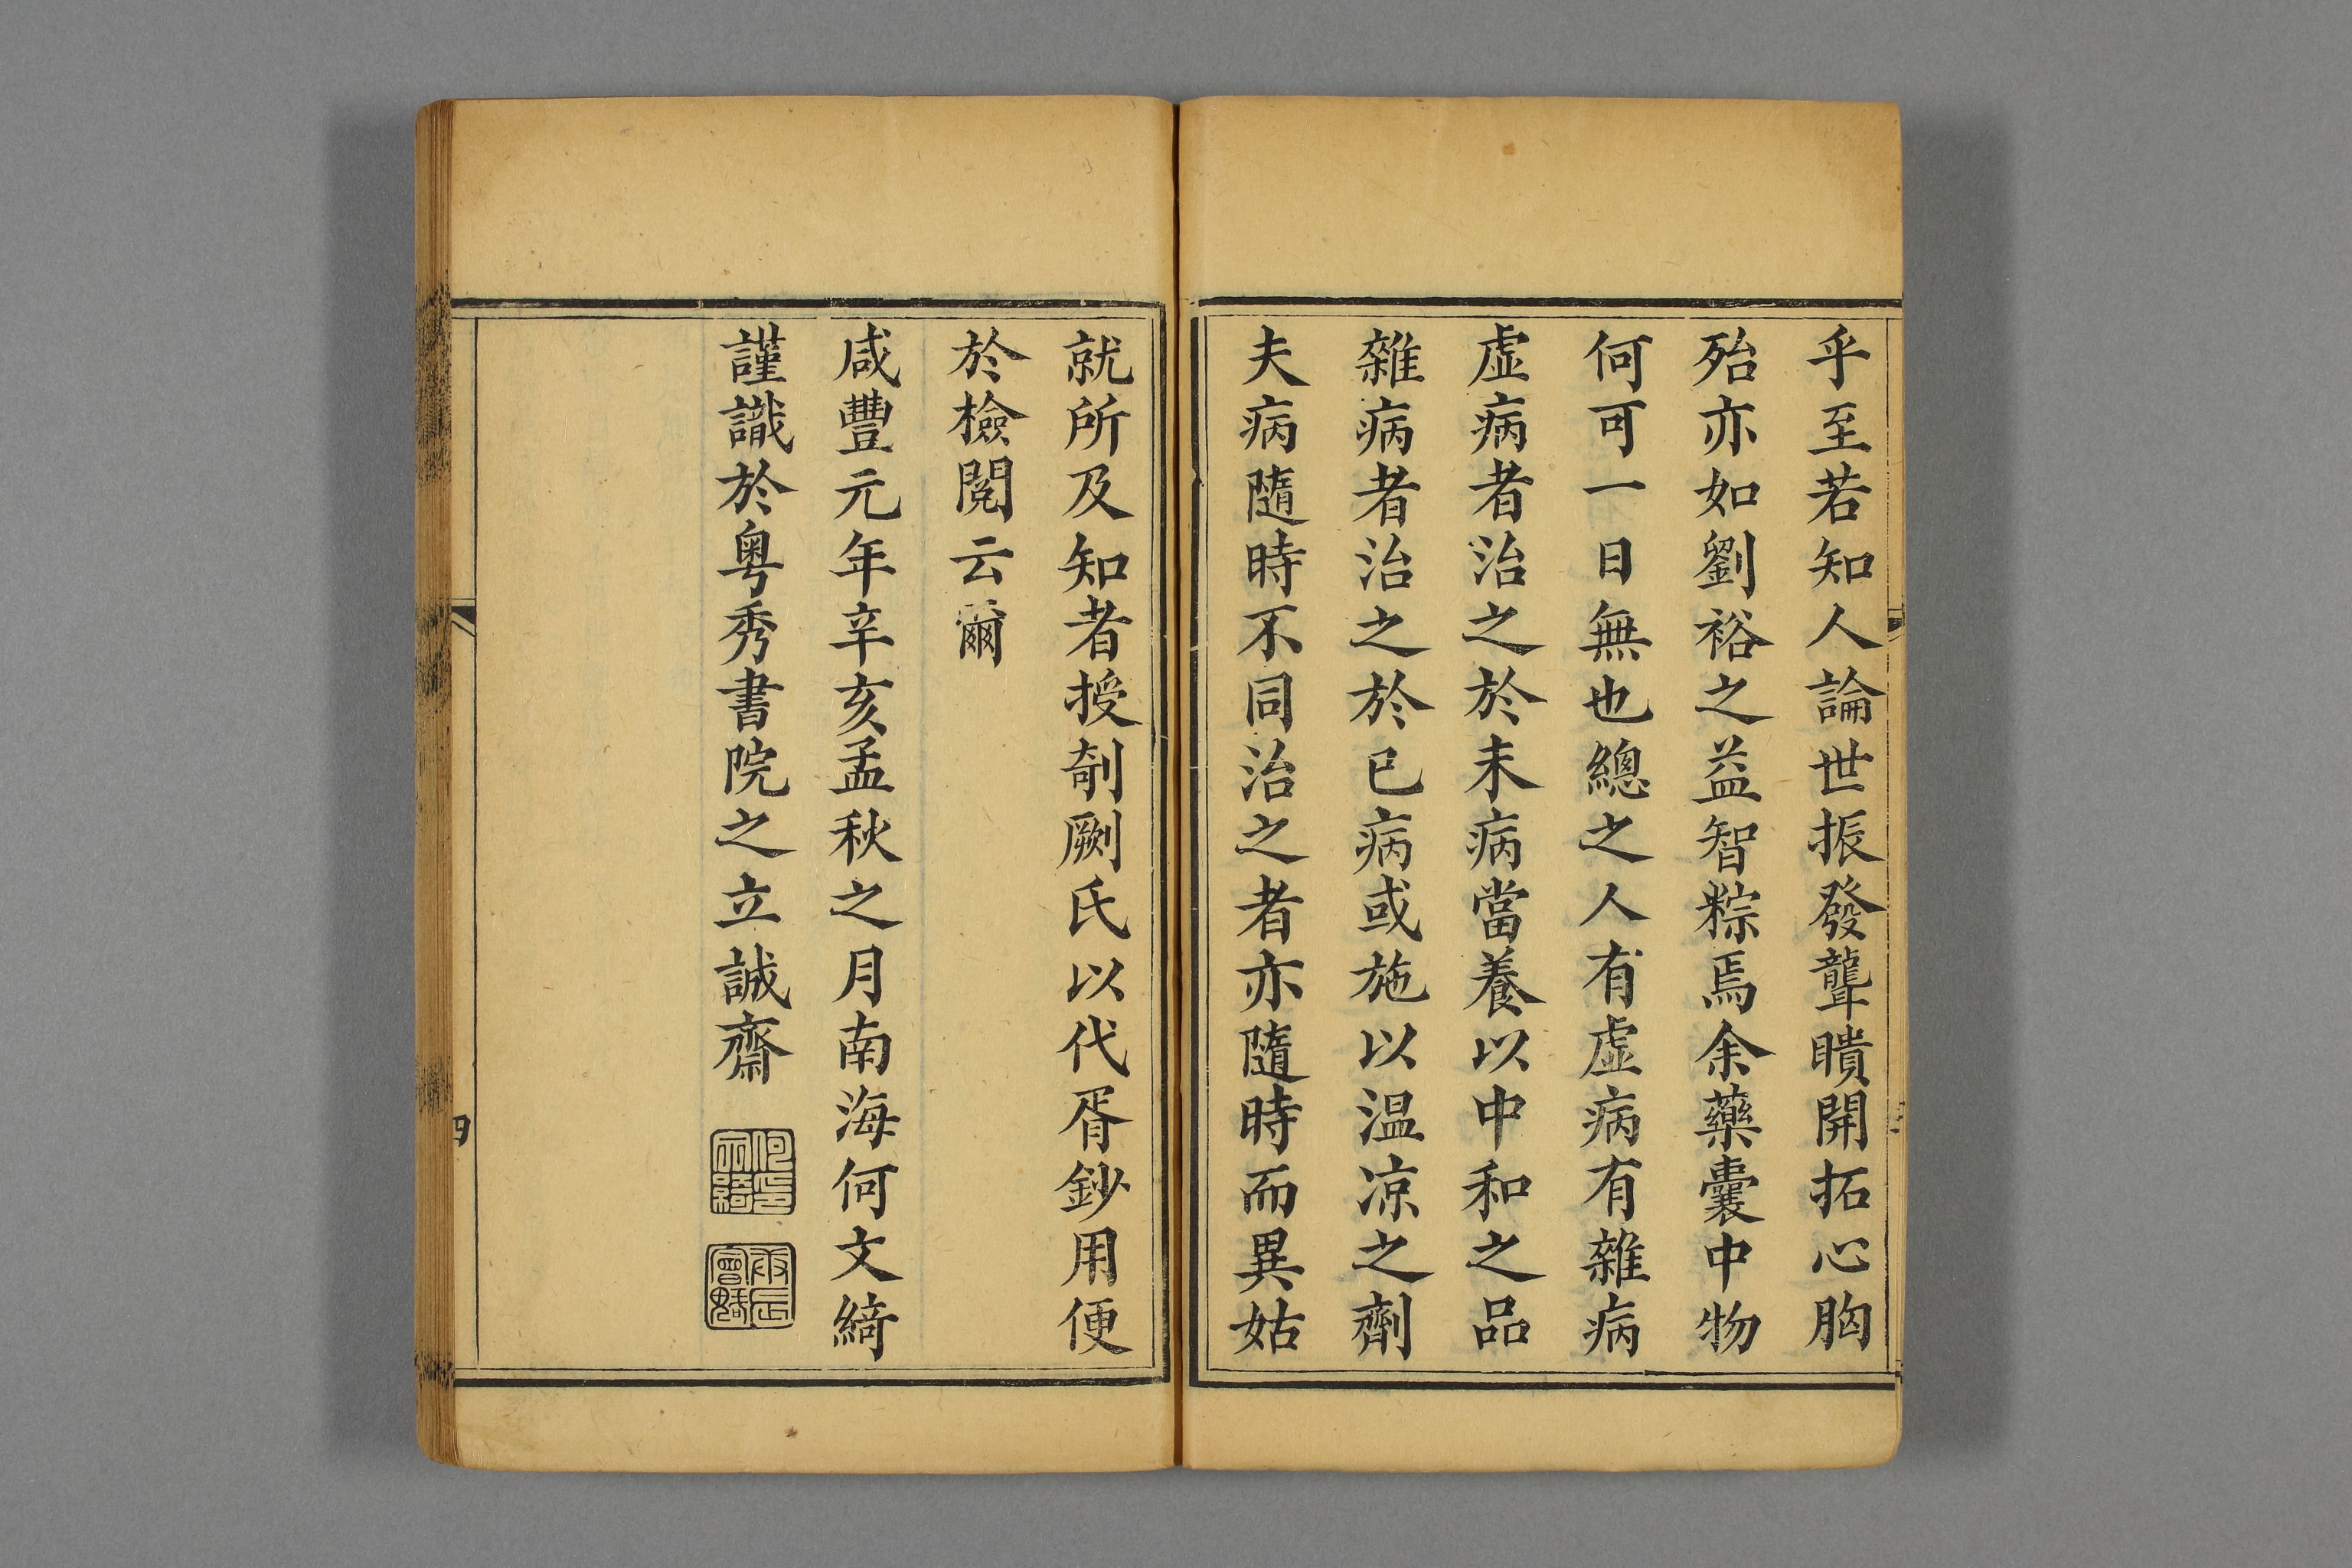 乎至若知人論世振發聾瞶開拓心胸
殆亦如劉裕之益智粽焉余藥囊中物
何可一日無也總之人有虛病有雜病
虛病者治之於未病當養以中和之品
雜病者治之於已病或施以温凉之劑
夫病隨時不同治之者亦隨時而異姑
就所及知者授剞劂氏以代胥鈔用便
於檢閱云爾
咸豐元年辛亥孟秋之月南海何文綺
謹識於粵秀書院之立誠齋
四